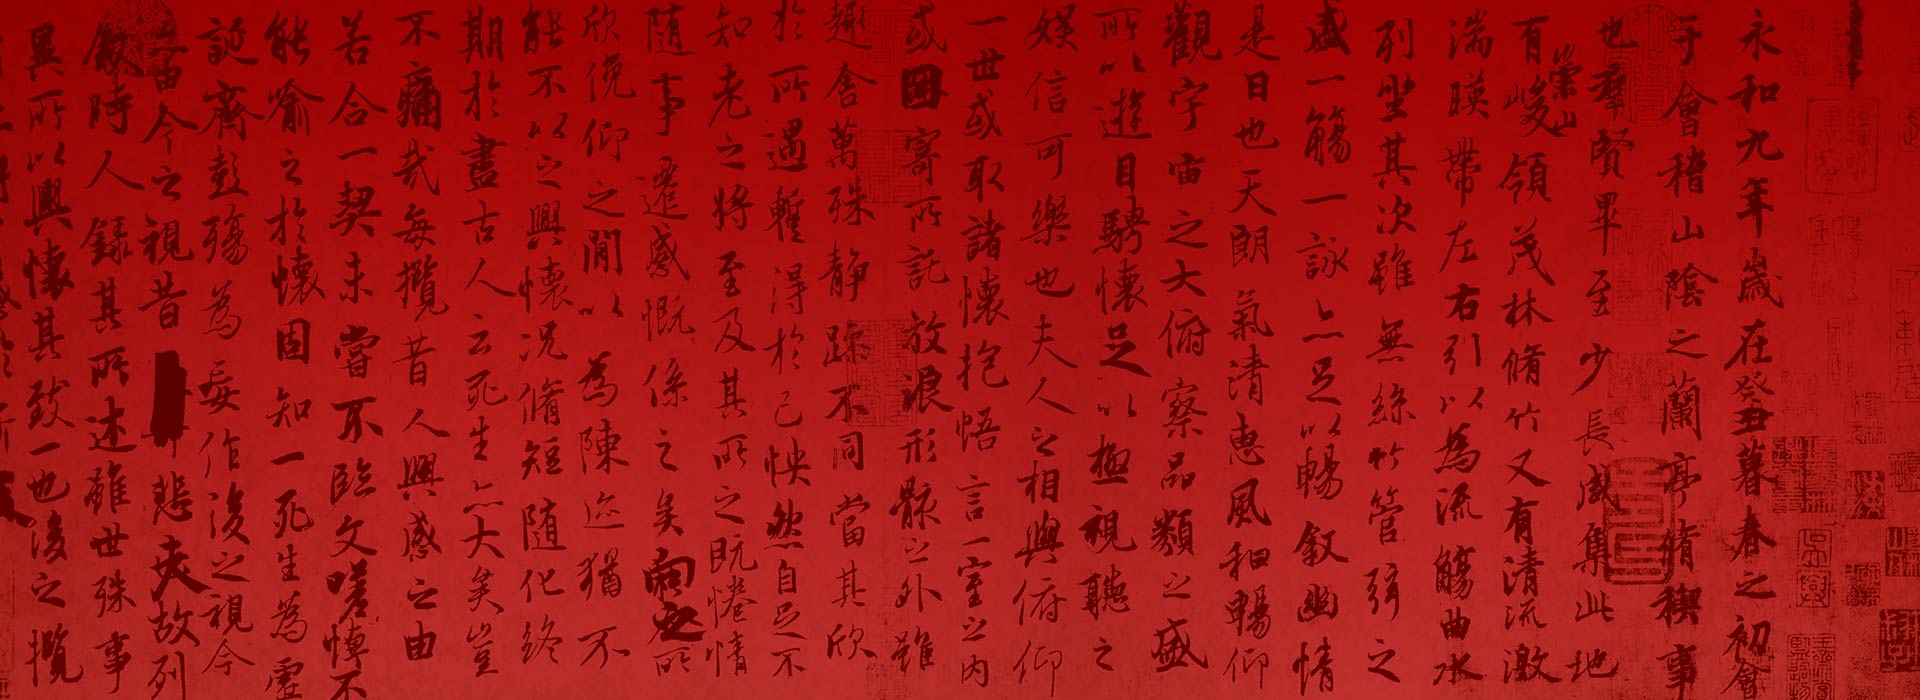 永和九年歲在癸丑暮春之初會
于會稽山陰之蘭亭脩稧事
也羣賢畢至少長咸集此地
有崇山峻領茂林脩竹又有清流激
湍暎帶左右引以為流觴曲水
列坐其次雖無絲竹管弦之
盛一觴一詠亦足以暢叙幽情
是日也天朗氣清惠風和暢仰
觀宇宙之大俯察品類之盛
所以遊目騁懷足以極視聽之
娛信可樂也夫人之相與俯仰
一世或取諸懷抱悟言一室之內
或因寄所託放浪形骸之外雖
趣舍萬殊靜躁不同當其欣
於所遇暫得於己怏然自足不
知老之將至及其所之既惓情
隨事遷感慨係之矣向之所
欣俛仰之閒以為陳迹猶不
能不以之興懷況脩短隨化終
期於盡古人云死生亦大矣豈
不痛哉每攬昔人興感之由
若合一契未嘗不臨文嗟悼不
能喻之於懷固知一死生為虛
誕齊彭殤為妄作後之視今
亦由今之視昔悲夫故列
敘時人錄其所述雖世殊事
異所以興懷其致一也後之攬